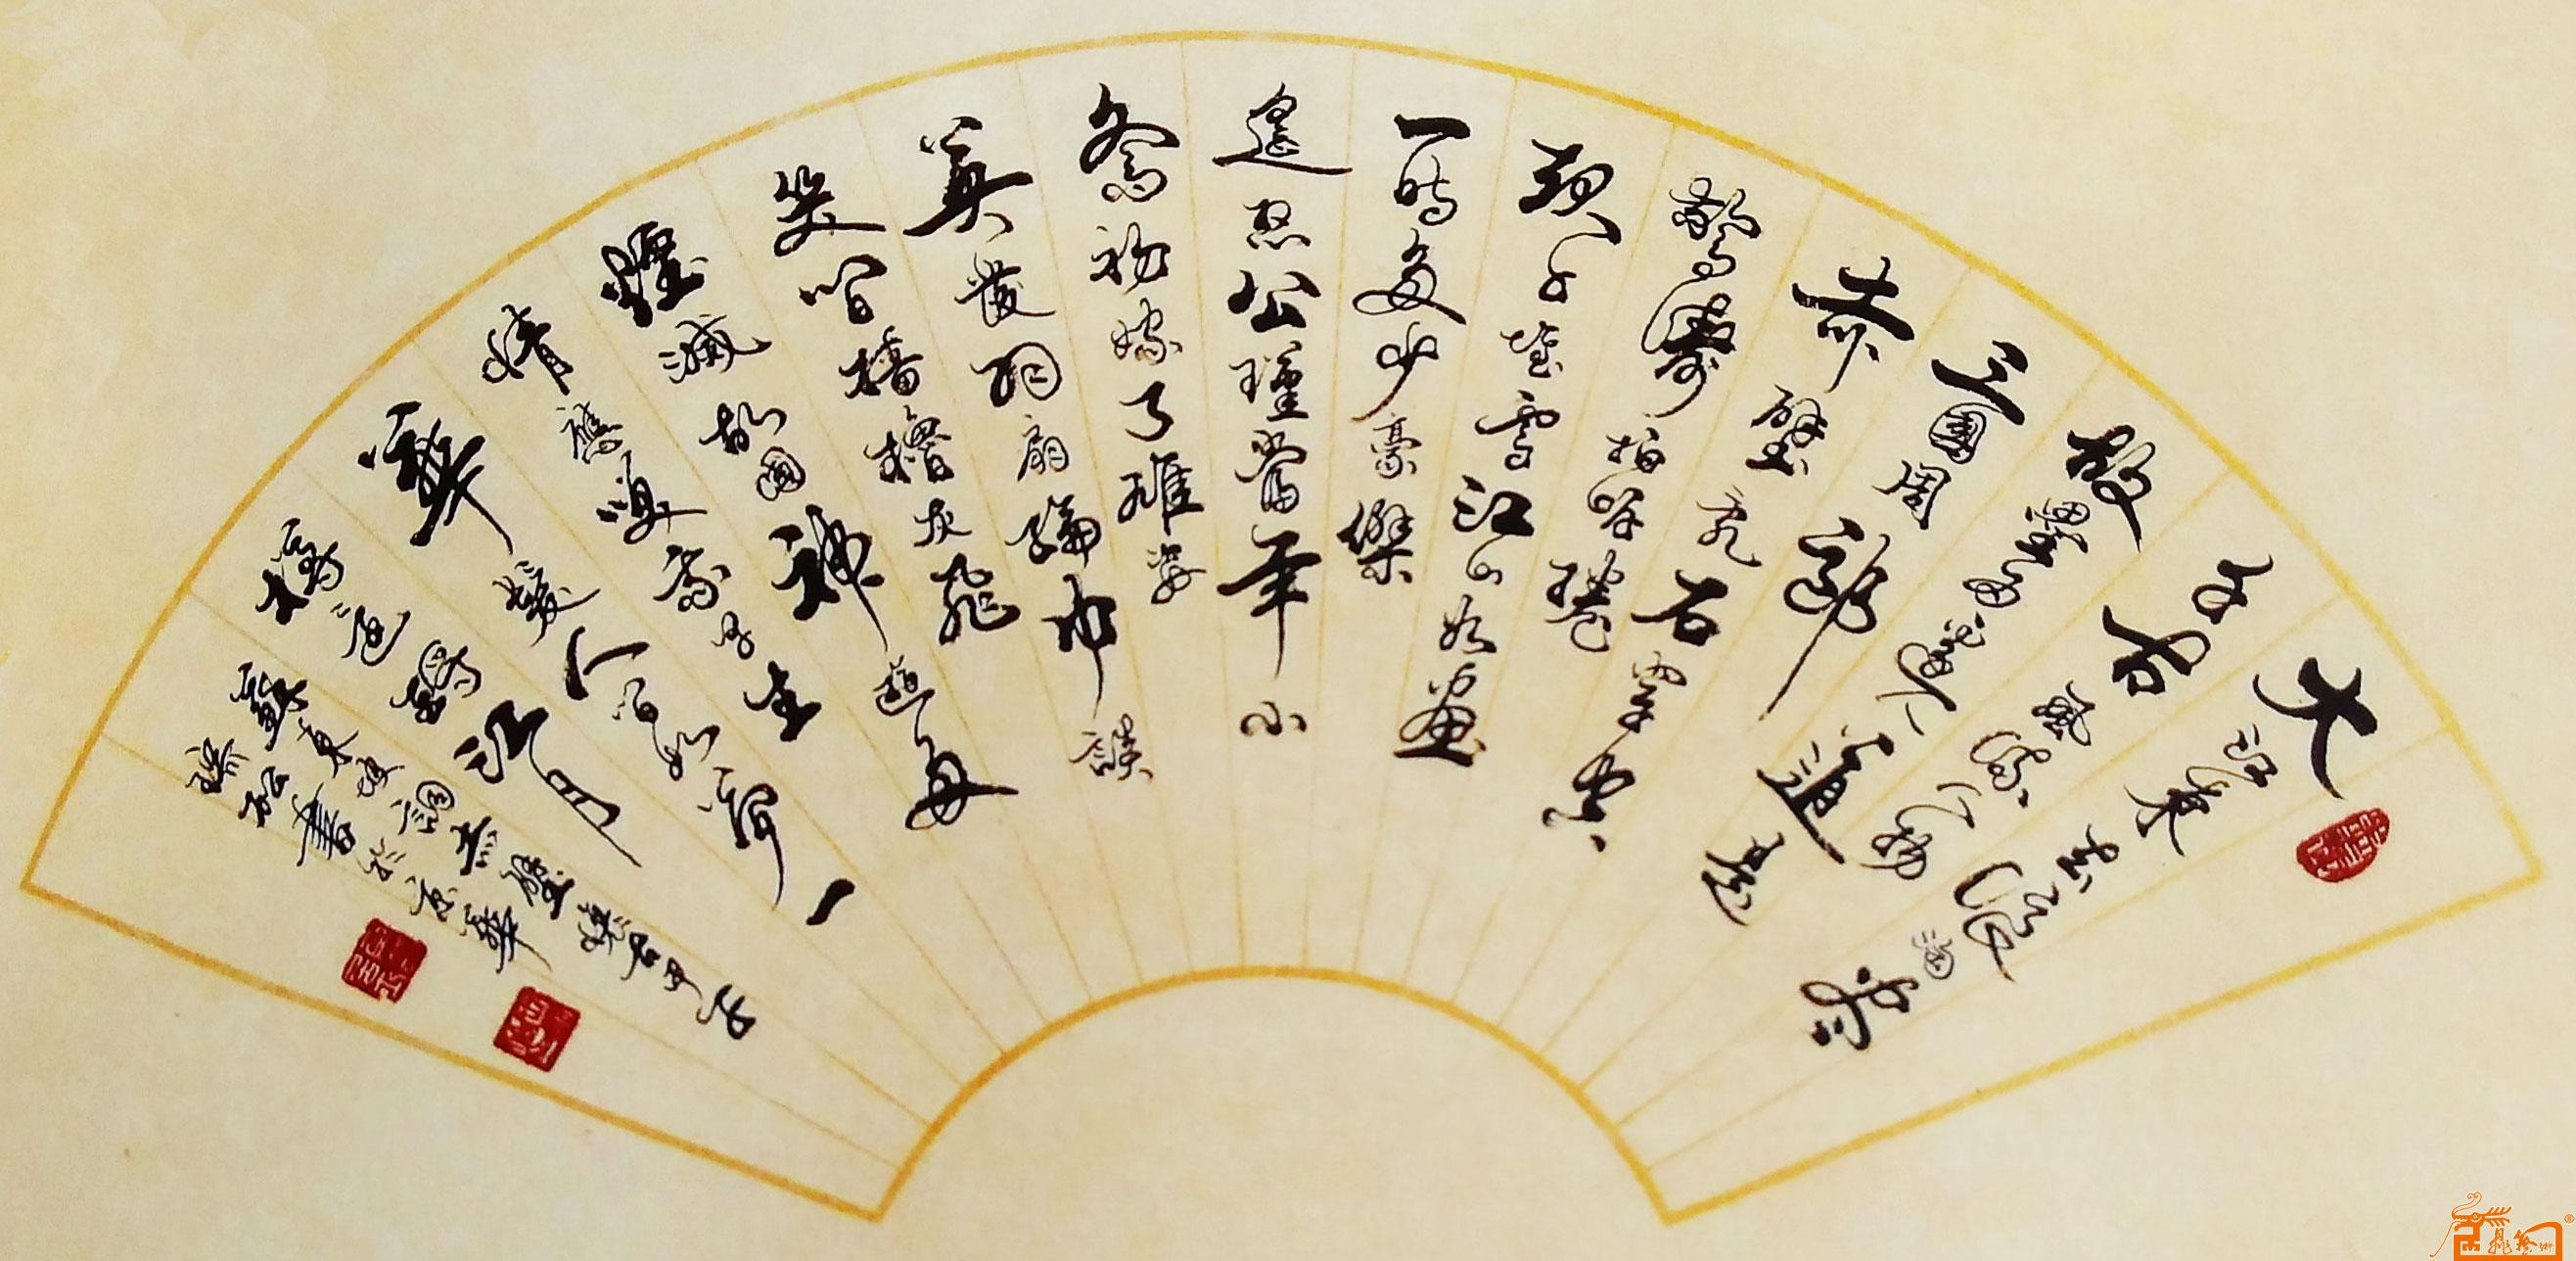 大江東去浪淘盡
千古風流人物
故壘西邊人道是
三國周郎
赤壁亂石穿空
驚濤拍岸捲
起千堆雪江山如畫
一時多少豪傑
遙想公瑾當年小
喬初嫁了雄姿
英發羽扇綸巾談
笑間檣櫓灰飛
煙滅故國神遊多
情應笑我早生
華髮人間如夢一
樽還酹江月
蘇東坡詞赤壁懷古甲子
書於京華